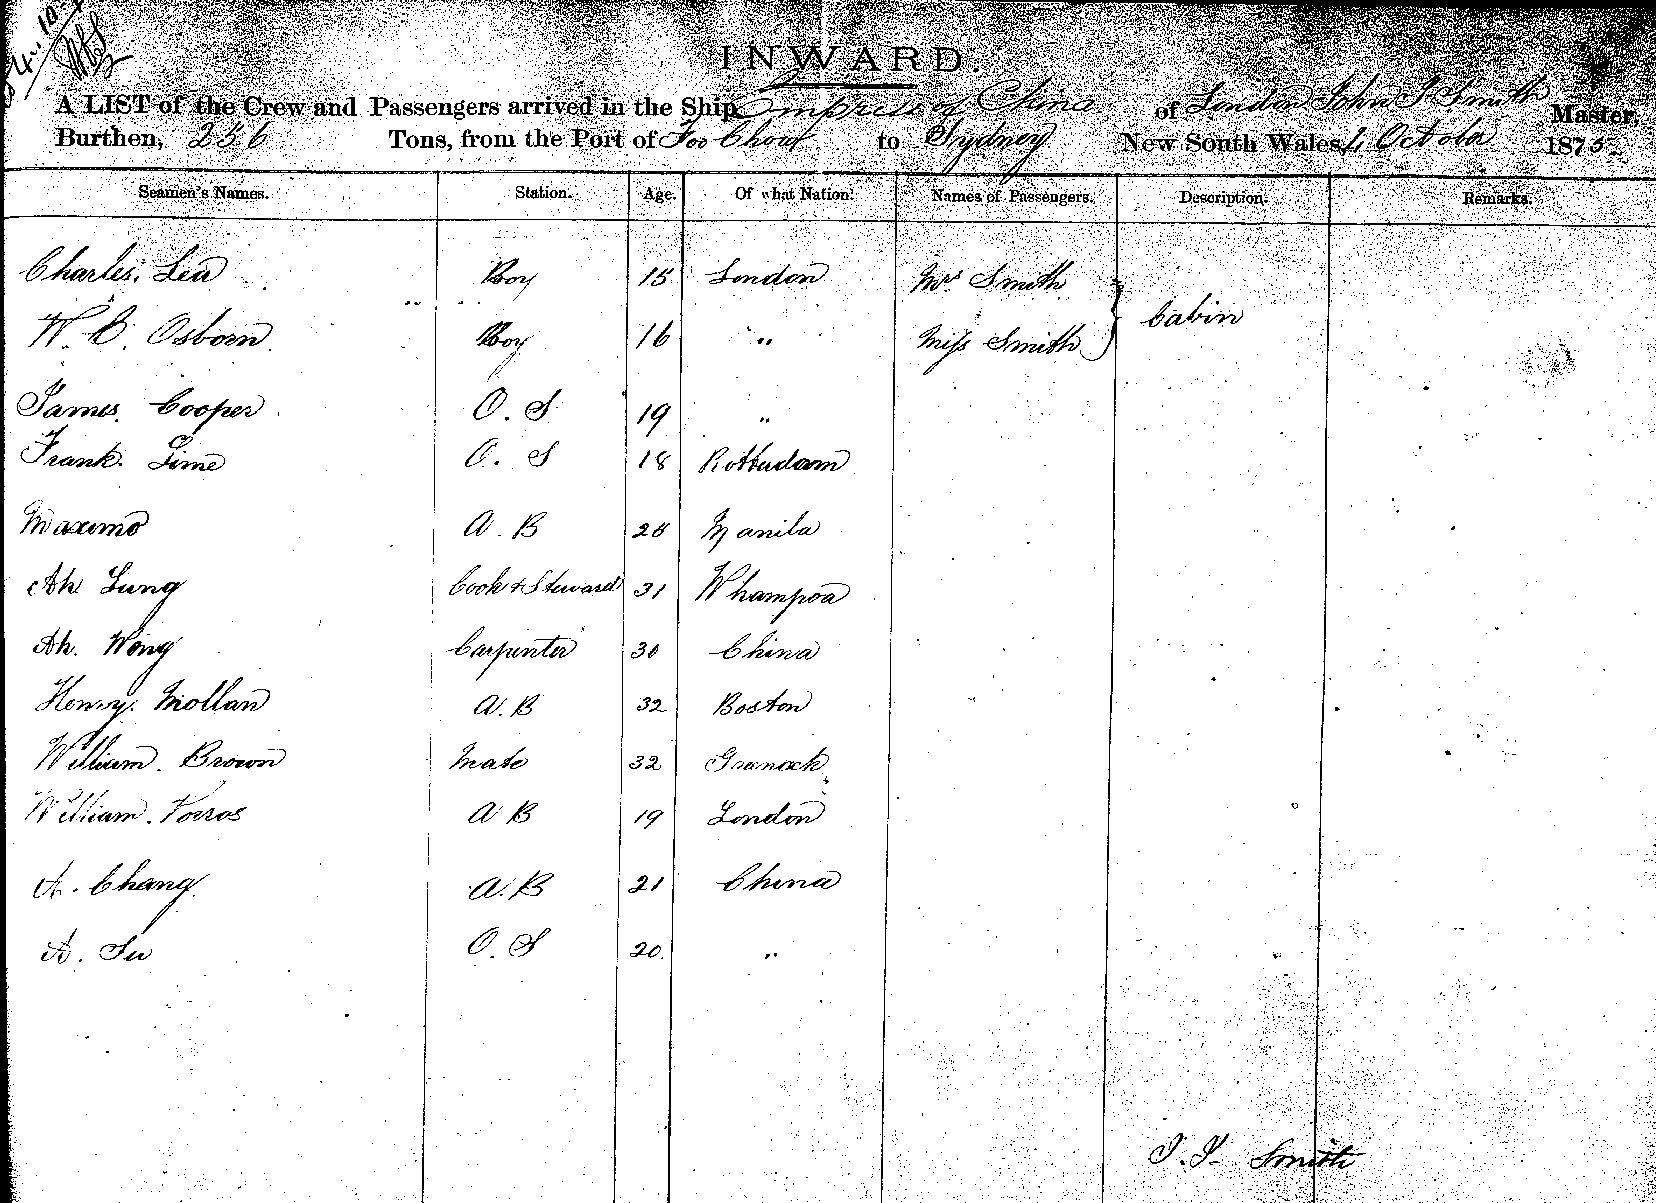 INWARD.
A LIST of the Crew and Passengers arrived in the Ship Empress of China of London John J Smith Master,
Burthen, 256 Tons, from the Port of Foo Chow to Sydney New South Wales, 4 October 1875
Seamen's Names. Station. Age. Of what Nation. Names of Passengers. Description. Remarks.
Charles Lea Boy 15 London Mrs Smith
Cabin
W. B. Osborn Boy 16 " Miss Smith
James Cooper O. S 19 "
Frank Lime O. S 18 Rotterdam
Maximo A. B 28 Manila
Ah Lung Cook & Steward 31 Whampoa
Ah. Wong Carpenter 30 China
Henry Mollan A. B 32 Boston
William Brown Mate 32 Greenock
William A B 19 London
A. Chang A. B 21 China
A. Su O. S 20 "
J. J. Smith